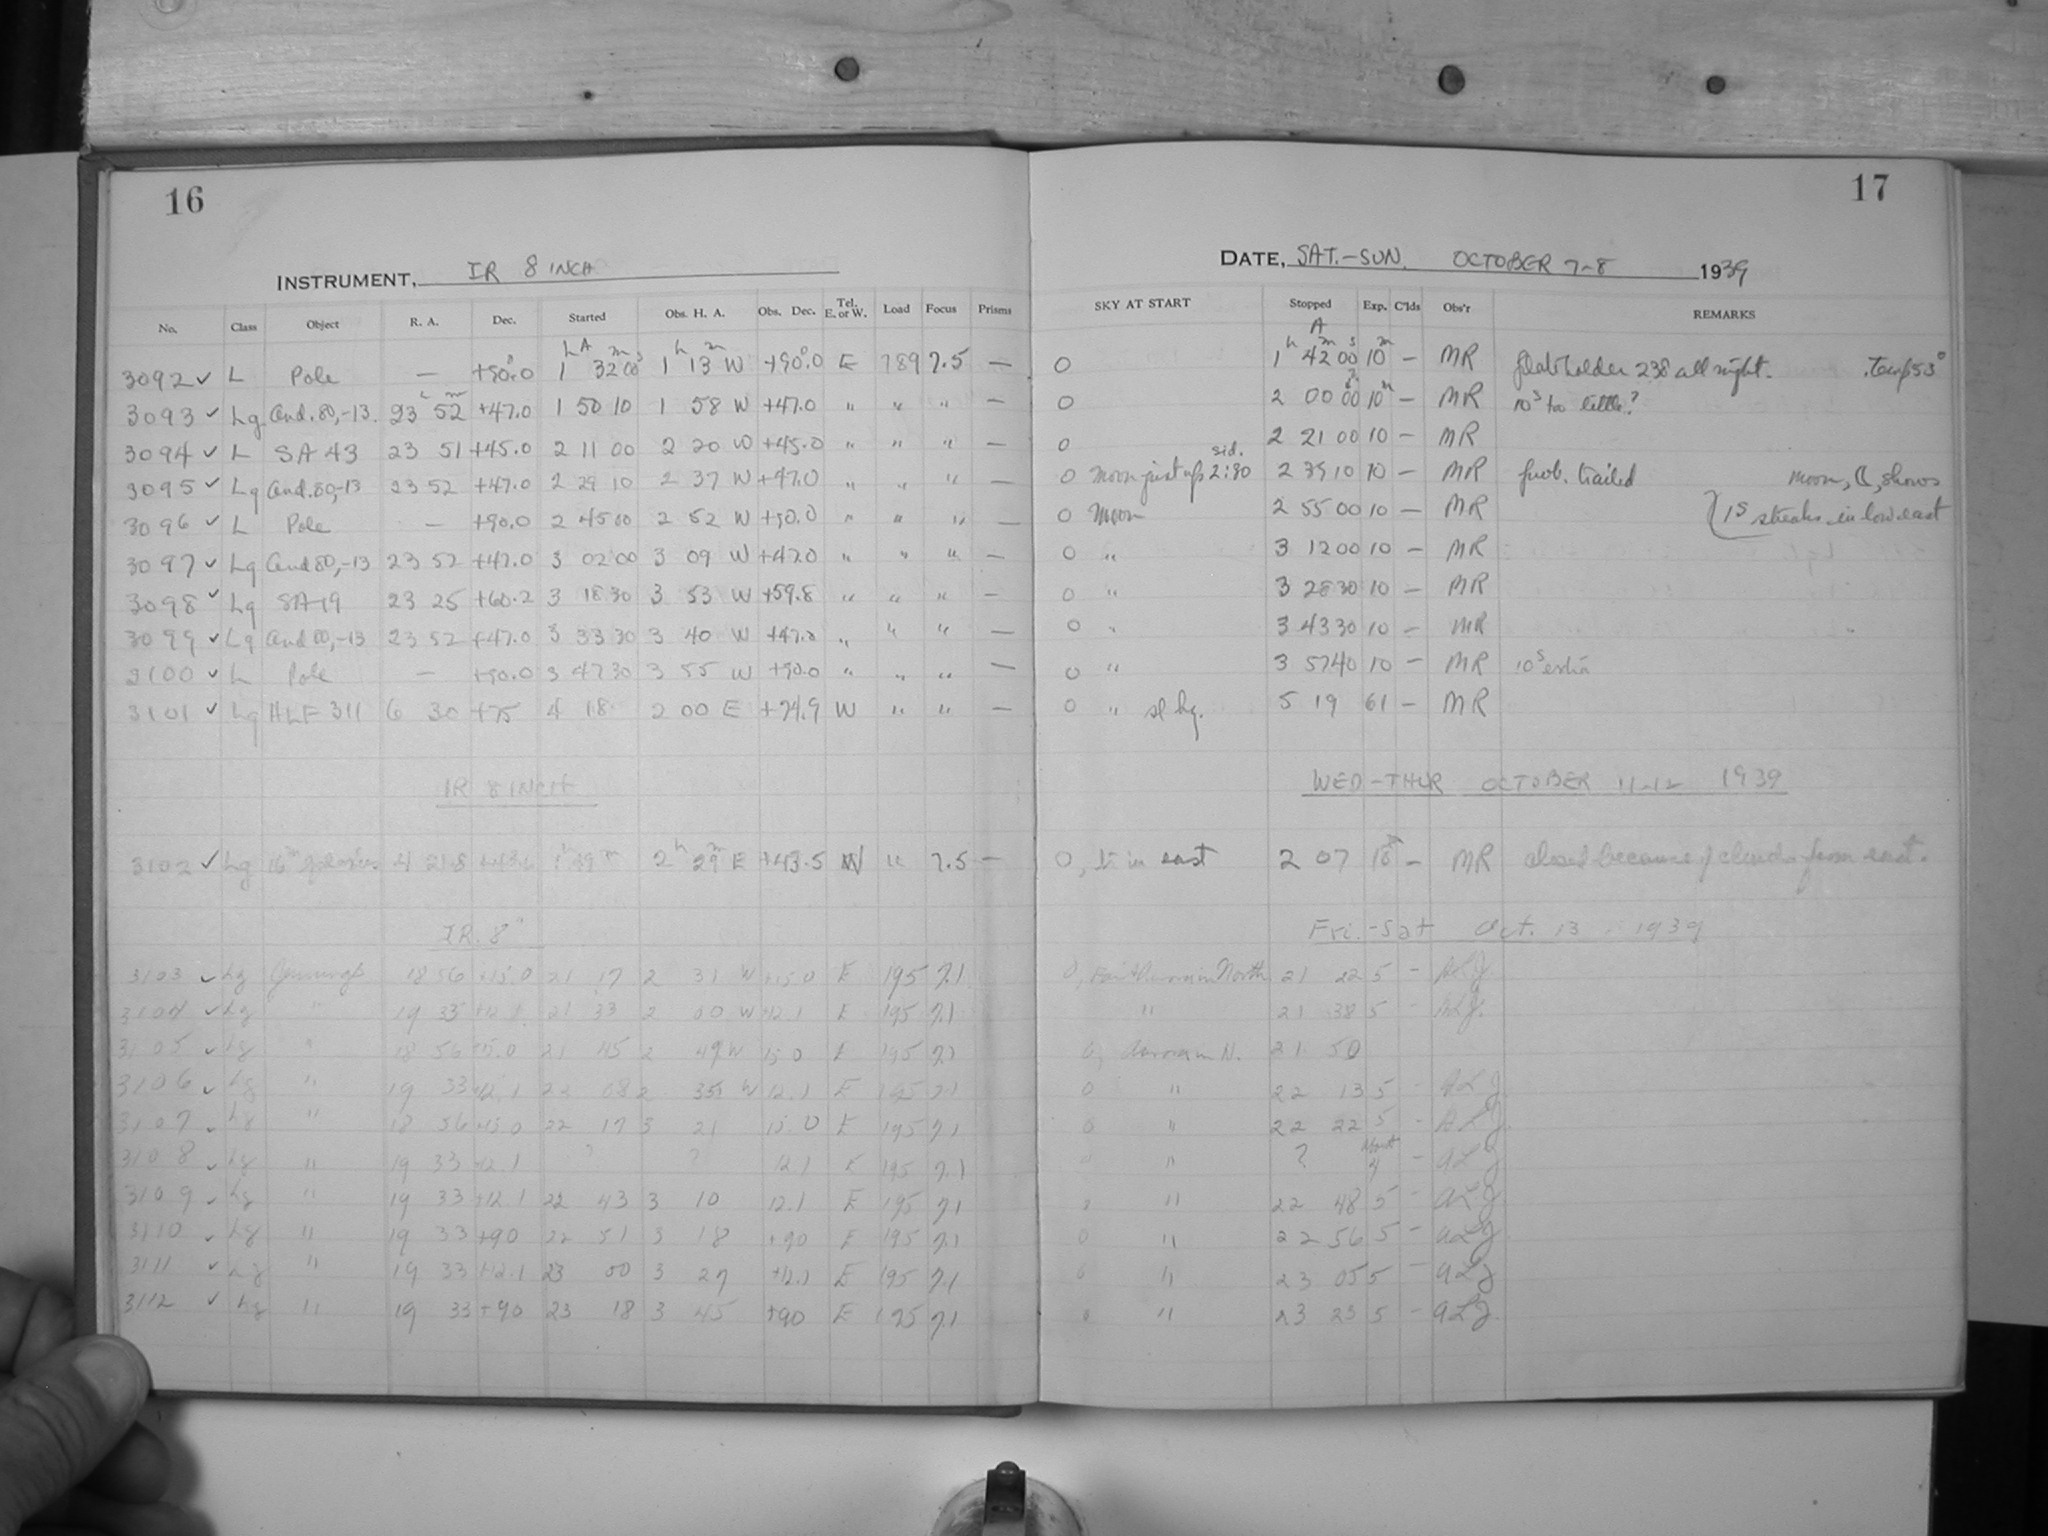 16
INSTRUMENT, IR 8 INCH
No. Class Object R. A. Dec. Started Obs. H. A. Obs. Dec. Tel. E. or W. Load Focus Prisms
3092 ✓ L Pole — +90.0 1 32 00 1 13 W +90.0 E 789 7.5 —
3093 ✓ Lg And. 80,-13 23 52 +47.0 1 50 10 1 58 W +47.0 " " " —
3094 ✓ L SA 43 23 51 +45.0 2 11 00 2 20 W +45.0 " " " —
3095 ✓ Lg And. 80,-13 23 52 +47.0 2 29 10 2 37 W +47.0 " " " —
3096 ✓ L Pole — +90.0 2 45 00 2 52 W +90.0 " " " —
3097 ✓ Lg And 80,-13 23 52 +47.0 3 02 00 3 09 W +47.0 " " " —
3098 ✓ Lg SA 19 23 25 +60.2 3 18 30 3 53 W +59.8 " " " —
3099 ✓ Lg And 80,-13 23 52 +47.0 3 33 30 3 40 W +47.0 " " " —
3100 ✓ L Pole — +90.0 3 47 30 3 55 W +90.0 " " " —
3101 ✓ Lg HLF 311 6 30 +75 4 18 2 00 E +74.9 W " " —
IR 8 INCH
3102 ✓ Lg 4 21.8 2 29 E +43.5 W " 7.5 —
IR. 8"
3103 ✓ Lg Jennings 18 56 +15.0 21 17 2 31 W +15.0 E 195 7.1
3104 ✓ Lg " 19 33 +12.1 21 33 2 00 W +12.1 E 195 7.1
3105 ✓ Lg " 18 56 +15.0 21 45 2 49 W 15.0 E 195 7.1
3106 ✓ Lg " 19 33 +12.1 22 08 2 35 W 12.1 E 195 7.1
3107 ✓ Lg " 18 56 +15.0 22 17 3 21 15.0 E 195 7.1
3108 ✓ Lg " 19 33 +12.1 ? ? 12.1 E 195 7.1
3109 ✓ Lg " 19 33 +12.1 22 43 3 10 12.1 E 195 7.1
3110 ✓ Lg " 19 33 +90 22 51 3 18 +90 E 195 7.1
3111 ✓ Lg " 19 33 +12.1 23 00 3 27 +12.1 E 195 7.1
3112 ✓ Lg " 19 33 +90 23 18 3 45 +90 E 195 7.1
17
DATE, SAT.-SUN. OCTOBER 7-8 1939
SKY AT START Stopped Exp. C'lds Obs'r REMARKS
0 1 42 00 10 — MR Plateholder 238 all night. temp 53°
0 2 00 00 10 — MR 10s too little?
0 2 21 00 10 — MR
0 Moon just up 2:30 sid. 2 39 10 10 — MR prob. trailed moon, ☾, shows
0 Moon 2 55 00 10 — MR 1S streaks in low east
0 " 3 12 00 10 — MR
0 " 3 28 30 10 — MR
0 " 3 43 30 10 — MR
0 " 3 57 40 10 — MR 10s extra
0 " sl hz. 5 19 61 — MR
WED-THUR OCTOBER 11-12 1939
0, in east 2 07 18 — MR closed because of clouds from east.
Fri.-Sat Oct. 13 1939
0, Faint Aurora in North 21 22 5 - ALJ
" 21 38 5 - ALJ.
0, Aurora in N. 21 50
0 " 22 13 5 - ALJ
0 " 22 22 5 - ALJ
" " ? About 4 - ALJ
0 " 22 48 5 - ALJ
0 " 22 56 5 - ALJ
0 " 23 05 5 - ALJ
0 " 23 23 5 - ALJ.